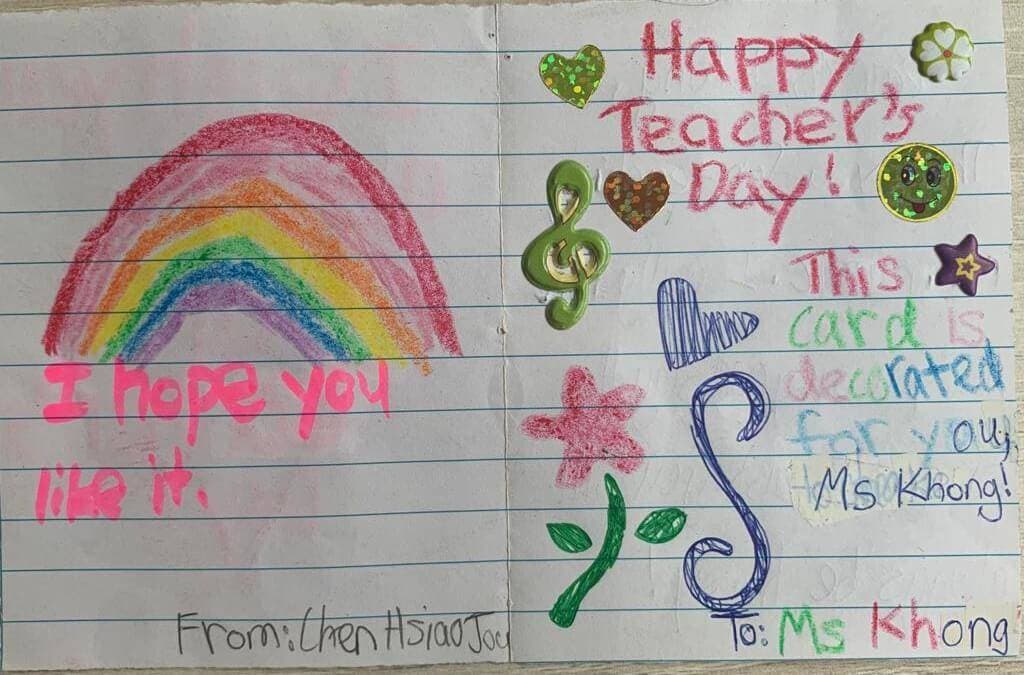 I hope you
like it.
From: Chen Hsiao Jou
Happy
Teacher's
Day!
This
card is
decorated
for you,
Ms Khong!
To: Ms Khong